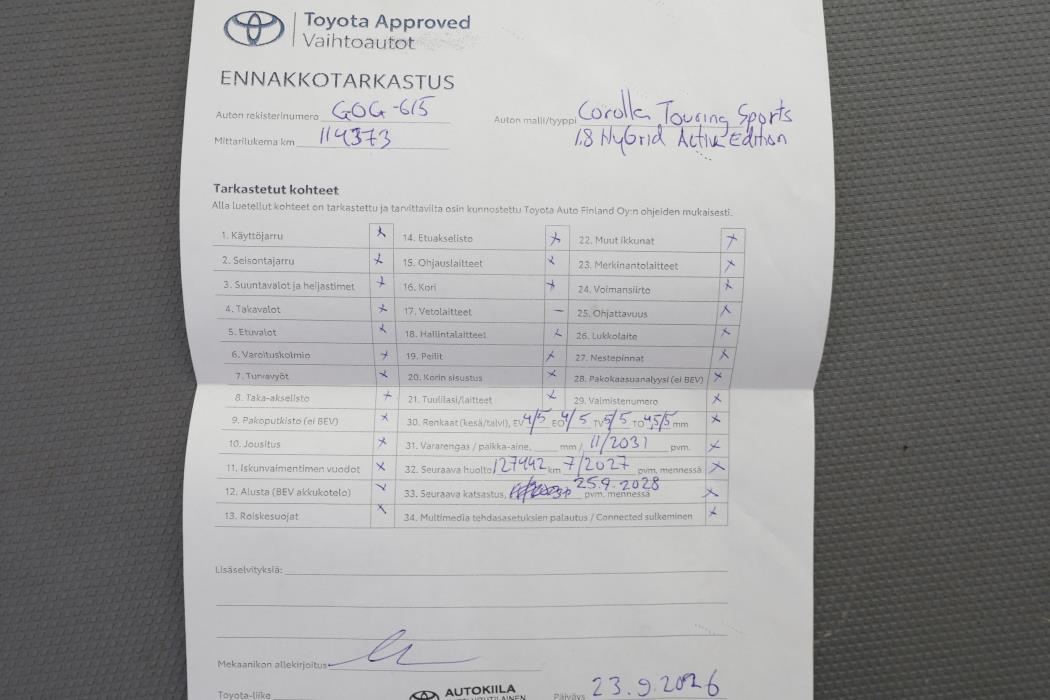 Toyota Approved
Vaihtoautot
ENNAKKOTARKASTUS
Auton rekisterinumero GOG-615
Auton malli/tyyppi Corolla Touring Sports
1.8 Hybrid Active Edition
Mittarilukema km 114373
Tarkastetut kohteet
Alla luetellut kohteet on tarkastettu ja tarvittavilta osin kunnostettu Toyota Auto Finland Oy:n ohjeiden mukaisesti.
1. Käyttöjarru x 14. Etuakselisto x 22. Muut ikkunat x
2. Seisontajarru x 15. Ohjauslaitteet x 23. Merkinantolaitteet x
3. Suuntavalot ja heijastimet x 16. Kori x 24. Voimansiirto x
4. Takavalot x 17. Vetolaitteet – 25. Ohjattavuus x
5. Etuvalot x 18. Hallintalaitteet x 26. Lukkolaite x
6. Varoituskolmio x 19. Peilit x 27. Nestepinnat x
7. Turvavyöt x 20. Korin sisustus x 28. Pakokaasuanalyysi (ei BEV) x
8. Taka-akselisto x 21. Tuulilasi/laitteet x 29. Valmistenumero x
9. Pakoputkisto (ei BEV) x 30. Renkaat (kesä/talvi), EV 4/5 EO 4/5 TV 5/5 TO 4,5/5 mm x
10. Jousitus x 31. Vararengas / paikka-aine, mm / 11/2031 pvm. x
11. Iskunvaimentimen vuodot x 32. Seuraava huolto 127442 km 7/2027 pvm. mennessä x
12. Alusta (BEV akkukotelo) x 33. Seuraava katsastus, 25.9.2028 pvm. mennessä x
13. Roiskesuojat x 34. Multimedia tehdasasetuksien palautus / Connected sulkeminen x
Lisäselvityksiä:
Mekaanikon allekirjoitus
Toyota-liike AUTOKIILA Päiväys 23.9.2026